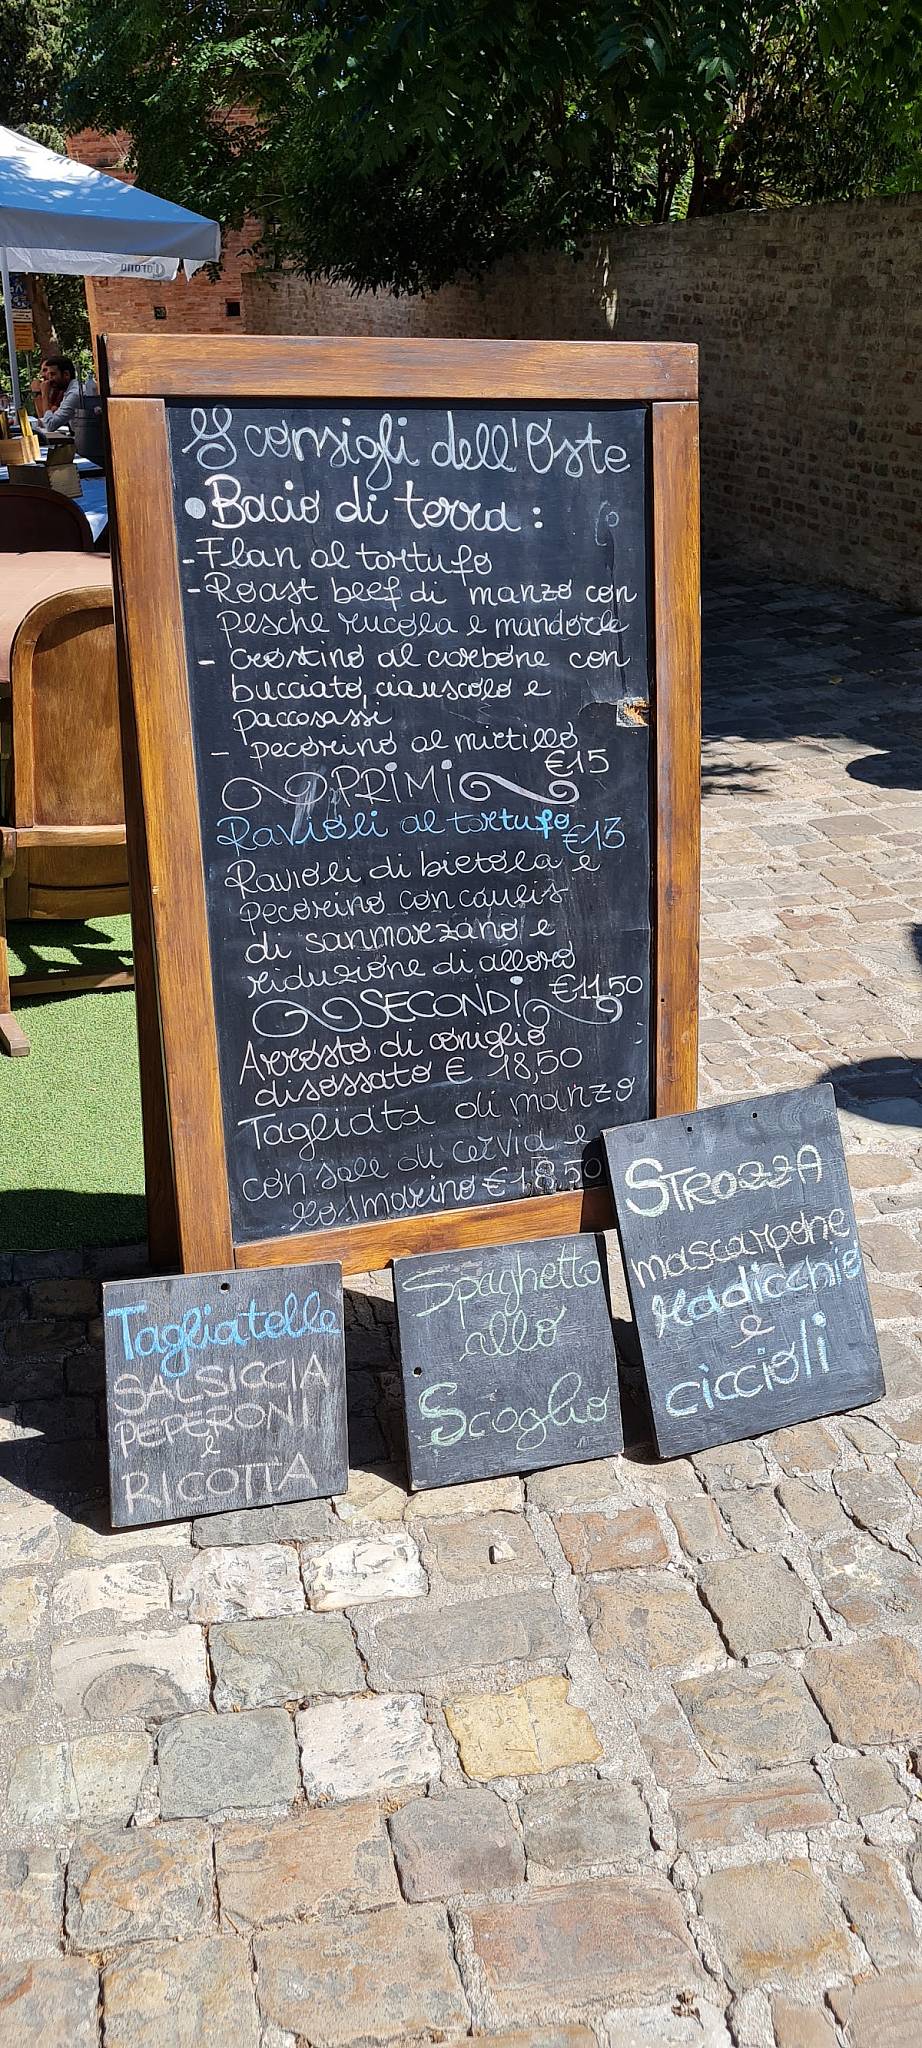 Corona
I consigli dell'Oste
• Bacio di terra :
- Flan al tartufo
- Roast beef di manzo con
pesche rucola e mandorle
- crostino al carbone con
bucciato, ciauscolo e
paccasassi
- pecorino al mirtillo
€15
PRIMI
Ravioli al tartufo €13
Ravioli di bietola e
pecorino con coulis
di sanmarzano e
riduzione di alloro
€11.50
SECONDI
Arrosto di coniglio
disossato € 18,50
Tagliata di manzo
con sale di cervia e
rosmarino € 18.50
STROZZA
mascarpone
Radicchio
e
cìccioli
Tagliatelle
SALSICCIA
PEPERONI
e
RICOTTA
Spaghetto
allo
Scoglio